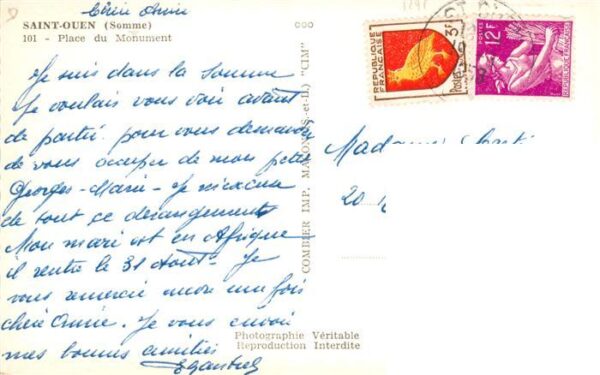 Chère Annie
SAINT-OUEN (Somme)
101 - Place du Monument
Je suis dans la Somme
Je voulais vous voir avant
de partir pour vous demander
de vous occuper de mon petit
Georges-Marie - Je m'excuse
de tout ce dérangement
Mon mari est en Afrique
il rentre le 31 Août - Je
vous remercie encore une fois
chère Annie. Je vous envoie
mes bonnes amitiés
COMBIER IMP. MACON (S.-et-L.) "CIM"
Photographie Véritable
Reproduction Interdite
REPUBLIQUE FRANÇAISE
Postes
12F
POSTES
REPUBLIQUE FRANÇAISE
Madame
20